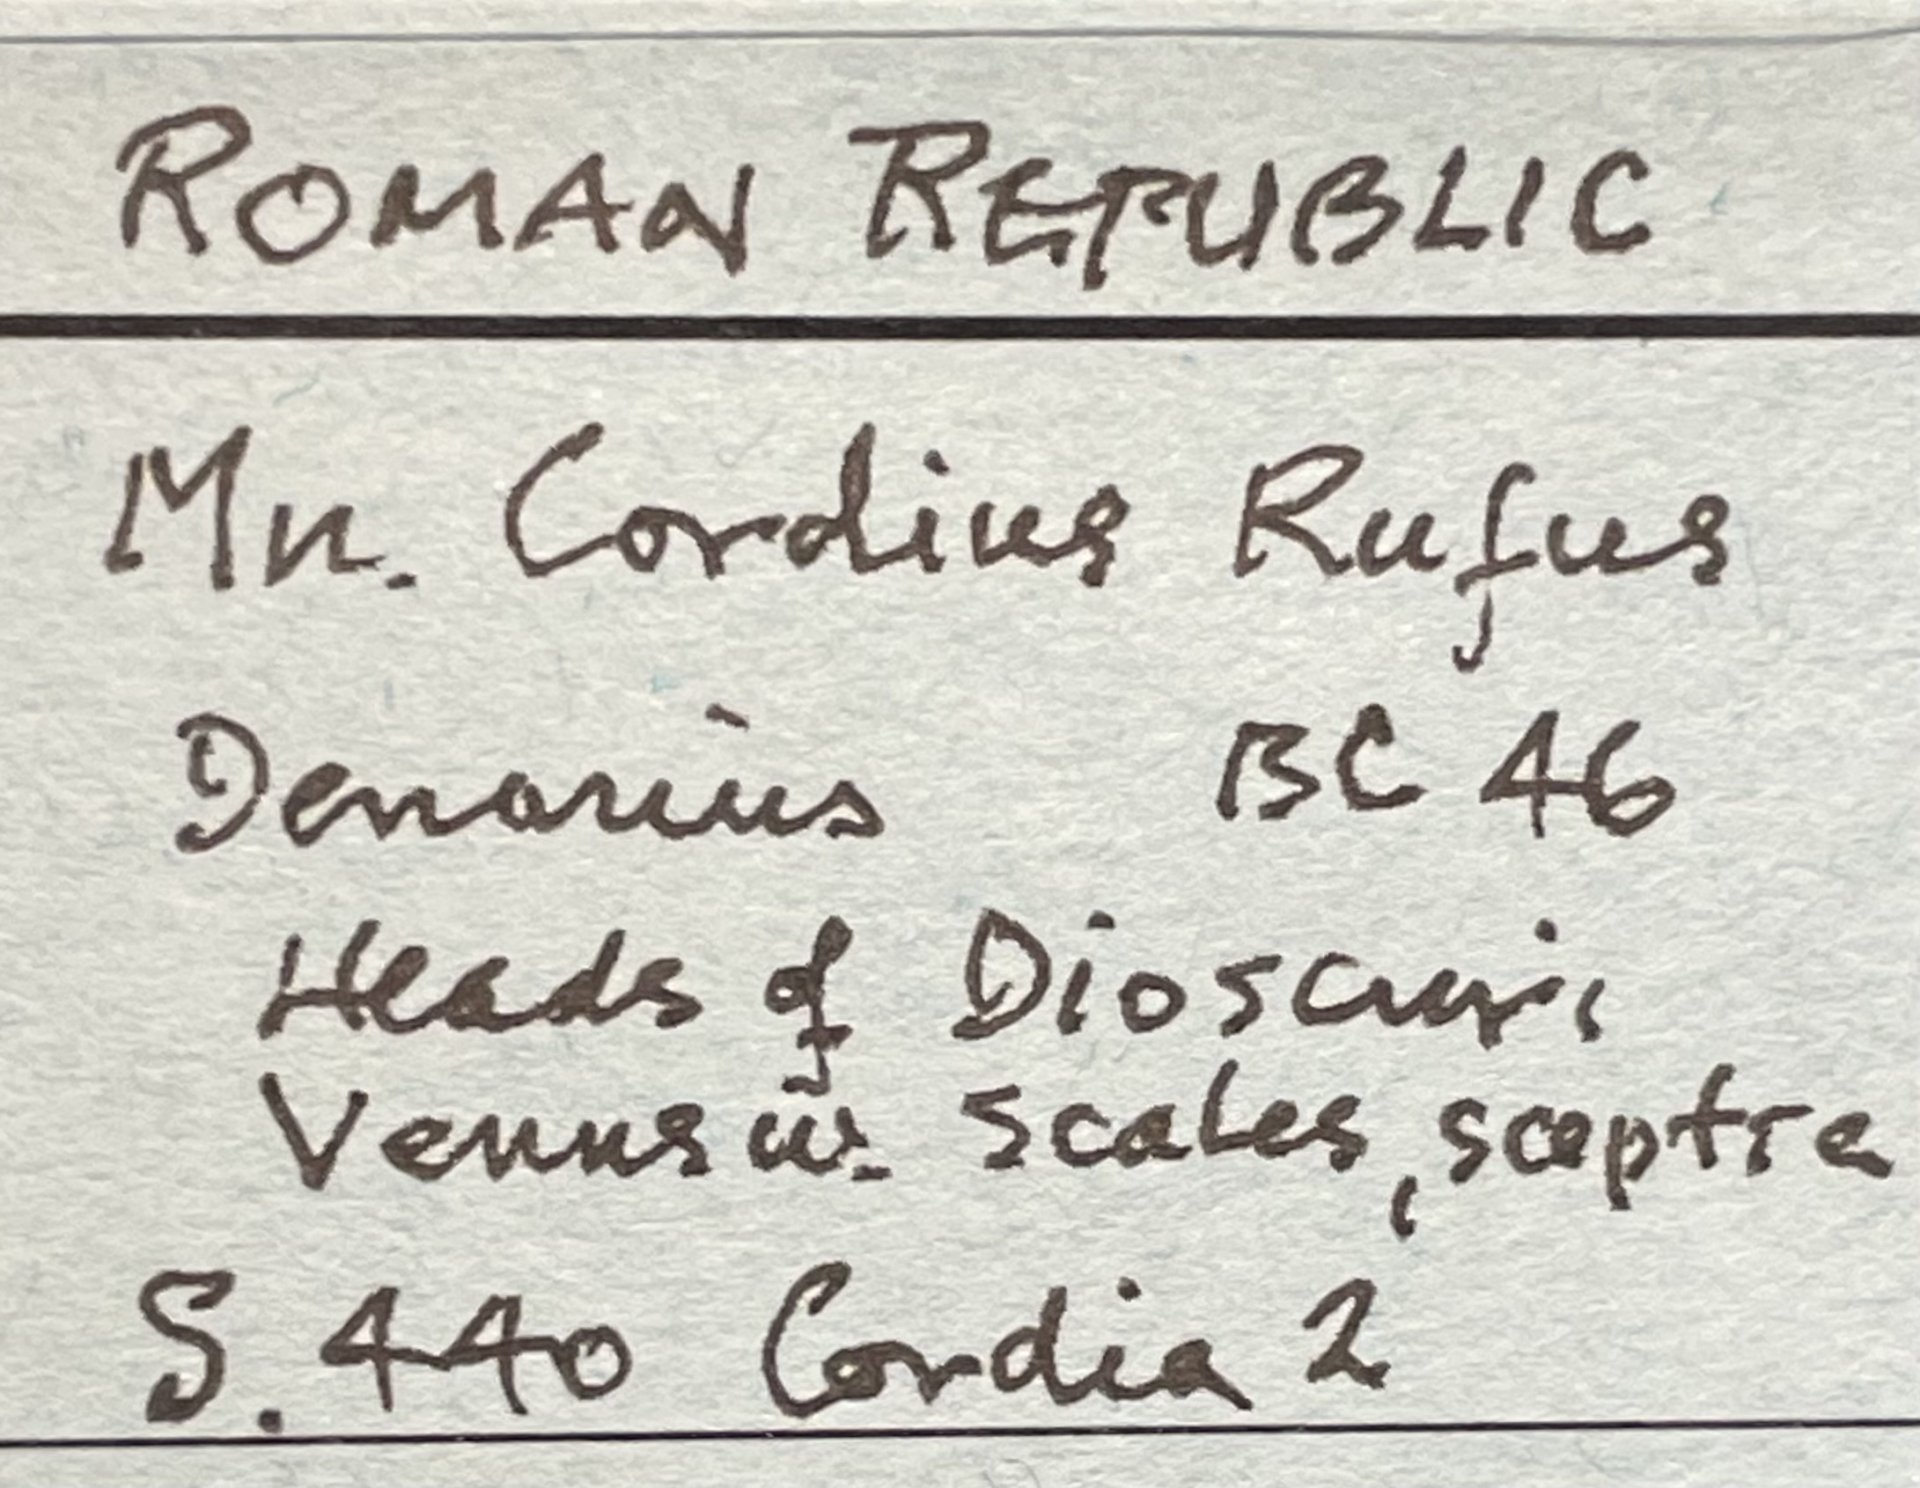 ROMAN REPUBLIC
Mn. Cordius Rufus
Denarius BC 46
Heads of Dioscuri
Venus w. scales, sceptre
S. 440 Cordia 2